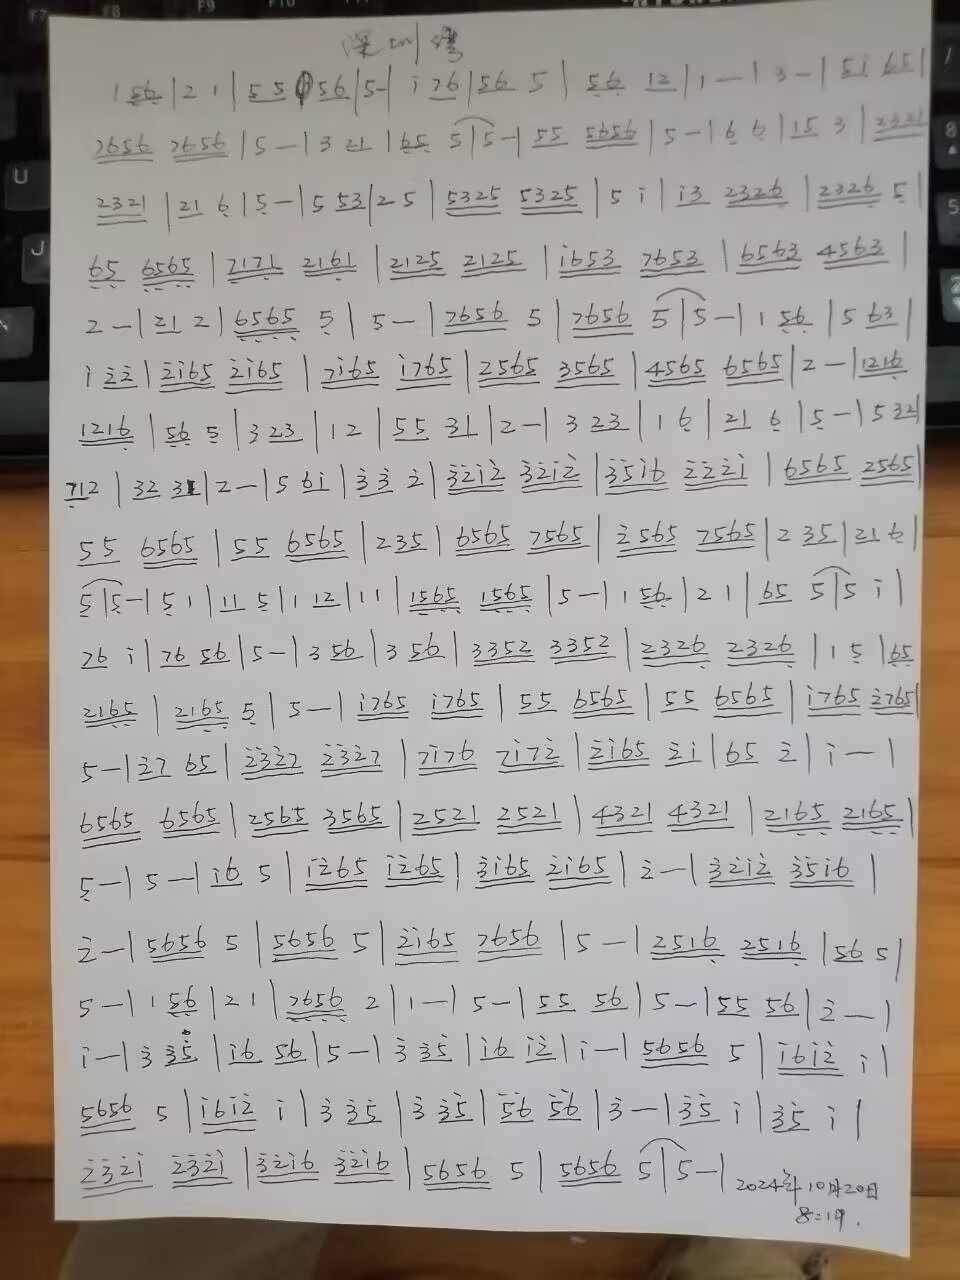 深圳湾
1 56 | 2 1 | 5 5 56 | 5 - | i 76 | 56 5 | 56 12 | 1 - | 3 - | 5i 65 |
7656 7656 | 5 - | 3 21 | 65 5 | 5 - | 55 5656 | 5 - | 6 6 | 15 3 | 2321
2321 | 21 6 | 5 - | 5 53 | 2 5 | 5325 5325 | 5 i | i3 2326 | 2326 5 |
65 6565 | 2171 2161 | 2125 2125 | i653 7653 | 6563 4563 |
2 - | 21 2 | 6565 5 | 5 - | 7656 5 | 7656 5 | 5 - | 1 56 | 5 63 |
i 22 | 2i65 2i65 | 7i65 i765 | 2565 3565 | 4565 6565 | 2 - | 1216
1216 | 56 5 | 3 23 | 1 2 | 55 31 | 2 - | 3 23 | 1 6 | 21 6 | 5 - | 5 32 |
712 | 32 31 | 2 - | 5 6i | 33 2 | 32i2 32i2 | 35i6 222i | 6565 2565 |
55 6565 | 55 6565 | 2 35 | 6565 7565 | 2565 7565 | 2 35 | 21 6 |
5 | 5 - | 5 1 | 11 5 | 1 12 | 1 1 | 1565 1565 | 5 - | 1 56 | 2 1 | 65 5 | 5 i |
76 i | 76 56 | 5 - | 3 56 | 3 56 | 3352 3352 | 2326 2326 | 1 5 | 65
2165 | 2165 5 | 5 - | i765 i765 | 55 6565 | 55 6565 | i765 2765 |
5 - | 27 65 | 2327 2327 | 7i76 7i72 | 2i65 2i | 65 2 | i - |
6565 6565 | 2565 3565 | 2521 2521 | 4321 4321 | 2165 2165 |
5 - | 5 - | i6 5 | i265 i265 | 3i65 2i65 | 2 - | 32i2 35i6 |
2 - | 5656 5 | 5656 5 | 2i65 7656 | 5 - | 2516 2516 | 56 5 |
5 - | 1 56 | 2 1 | 7656 2 | 1 - | 5 - | 55 56 | 5 - | 55 56 | 2 - |
i - | 3 35 | i6 56 | 5 - | 3 35 | i6 i2 | i - | 5656 5 | i6i2 i |
5656 5 | i6i2 i | 3 35 | 3 35 | 56 56 | 3 - | 35 i | 35 i |
232i 232i | 32i6 32i6 | 5656 5 | 5656 5 | 5 - | 2024年10月20日
8:19.